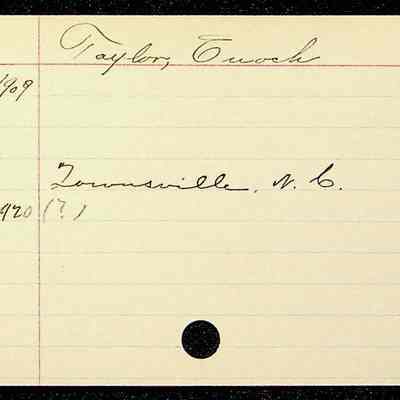 Taylor, Enoch
1909
Townsville, N. C.
1920 (?)